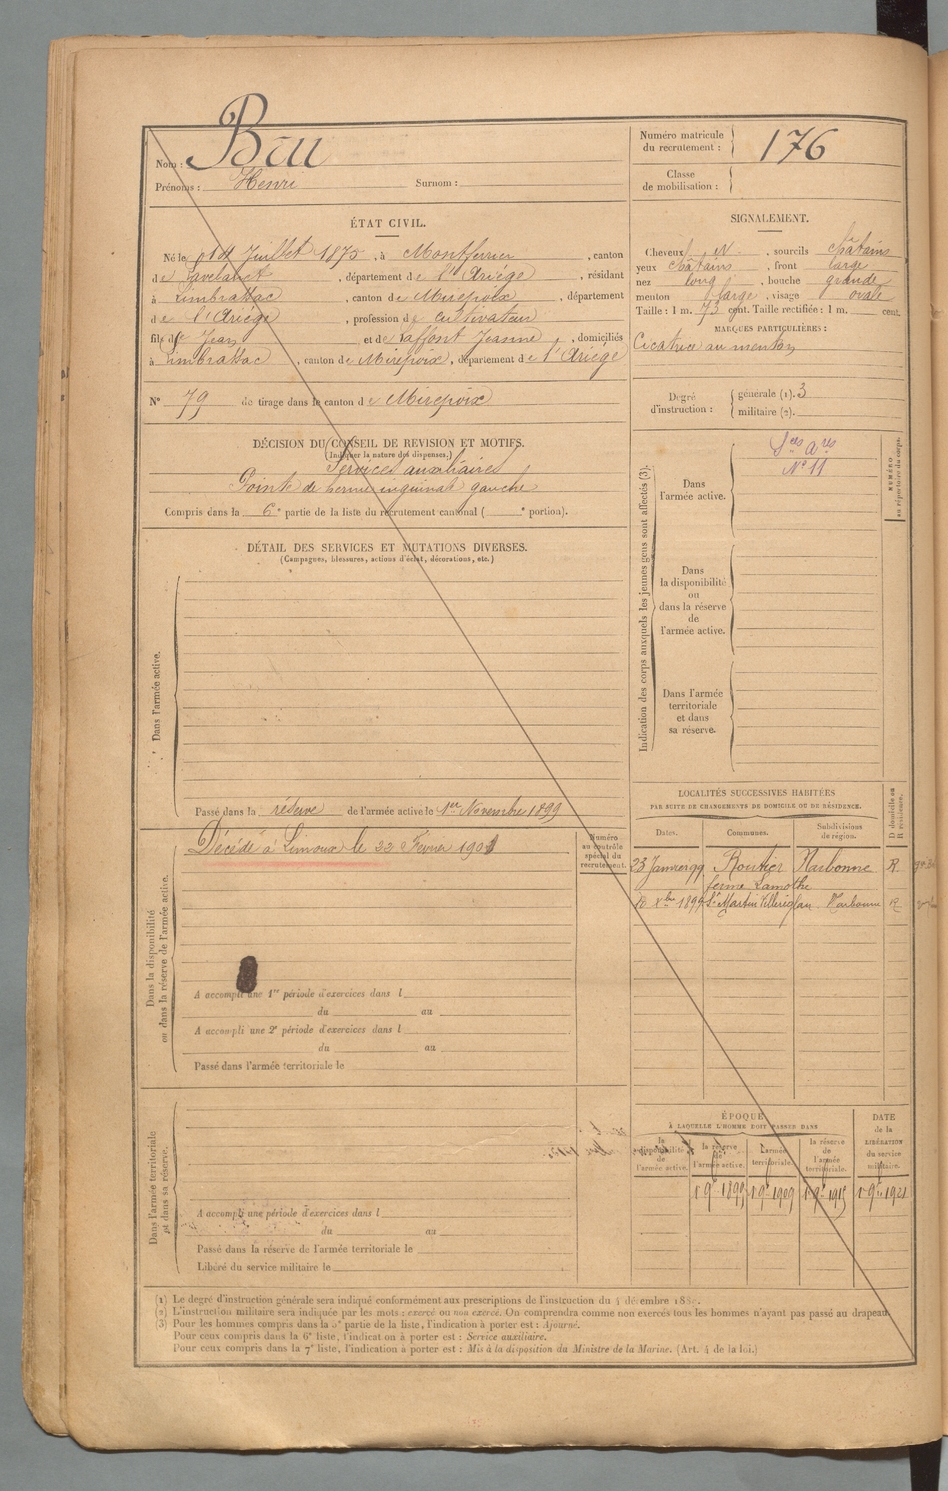 Nom : Bau
Prénoms : Henri Surnom :
Numéro matricule du recrutement : 176
Classe de mobilisation :
ÉTAT CIVIL.
Né le Juillet 1875, à Montferrier, canton
de Lavelanet, département de l'Ariège, résidant
à Limbrassac, canton de Mirepoix, département
de l'Ariège, profession de cultivateur
fils de Jean et de Laffont Jeanne, domiciliés
à Limbrassac, canton de Mirepoix, département de l'Ariège
SIGNALEMENT.
Cheveux N., sourcils châtains
yeux châtains, front large
nez long, bouche grande
menton large, visage ovale
Taille : 1 m. 73 cent. Taille rectifiée : 1 m. cent.
MARQUES PARTICULIÈRES :
Cicatrice au menton
N° 79 de tirage dans le canton de Mirepoix
Degré d'instruction : générale (1). 3
militaire (2).
DÉCISION DU CONSEIL DE REVISION ET MOTIFS.
(Indiquer la nature des dispenses.)
Services auxiliaires
Pointe de hernie inguinale gauche
Compris dans la 6e partie de la liste du recrutement cantonal ( e portion).
Indication des corps auxquels les jeunes gens sont affectés (3).
Dans l'armée active.
Sces Ares
N° 11
NUMÉRO au répertoire du corps.
Dans la disponibilité ou dans la réserve de l'armée active.
Dans l'armée territoriale et dans sa réserve.
DÉTAIL DES SERVICES ET MUTATIONS DIVERSES.
(Campagnes, blessures, actions d'éclat, décorations, etc.)
Dans l'armée active.
Passé dans la réserve de l'armée active le 1er Novembre 1899
Dans la disponibilité ou dans la réserve de l'armée active.
Décédé à Limoux le 22 Février 1901
Numéro au contrôle spécial du recrutement.
A accompli une 1re période d'exercices dans l
du au
A accompli une 2e période d'exercices dans l
du au
Passé dans l'armée territoriale le
LOCALITÉS SUCCESSIVES HABITÉES
PAR SUITE DE CHANGEMENTS DE DOMICILE OU DE RÉSIDENCE.
Dates. Communes. Subdivisions de région. D domicile ou R résidence.
23 Janvier 99 Routier Narbonne R
ferme Lamothe
10 Xbre 1899 St Martin Villereglan Narbonne R
Dans l'armée territoriale et dans sa réserve.
A accompli une période d'exercices dans l
du au
Passé dans la réserve de l'armée territoriale le
Libéré du service militaire le
ÉPOQUE
À LAQUELLE L'HOMME DOIT PASSER DANS
la disponibilité de l'armée active. la réserve de l'armée active. l'armée territoriale. la réserve de l'armée territoriale.
DATE de la LIBÉRATION du service militaire.
1 9bre 1899 1 9bre 1909 1 9bre 1915 1 9bre 1921
(1) Le degré d'instruction générale sera indiqué conformément aux prescriptions de l'instruction du 4 décembre
(2) L'instruction militaire sera indiquée par les mots : exercé ou non exercé. On comprendra comme non exercés tous les hommes n'ayant pas passé au drapeau.
(3) Pour les hommes compris dans la 5e partie de la liste, l'indication à porter est : Ajourné.
Pour ceux compris dans la 6e liste, l'indication à porter est : Service auxiliaire.
Pour ceux compris dans la 7e liste, l'indication à porter est : Mis à la disposition du Ministre de la Marine. (Art. 4 de la loi.)